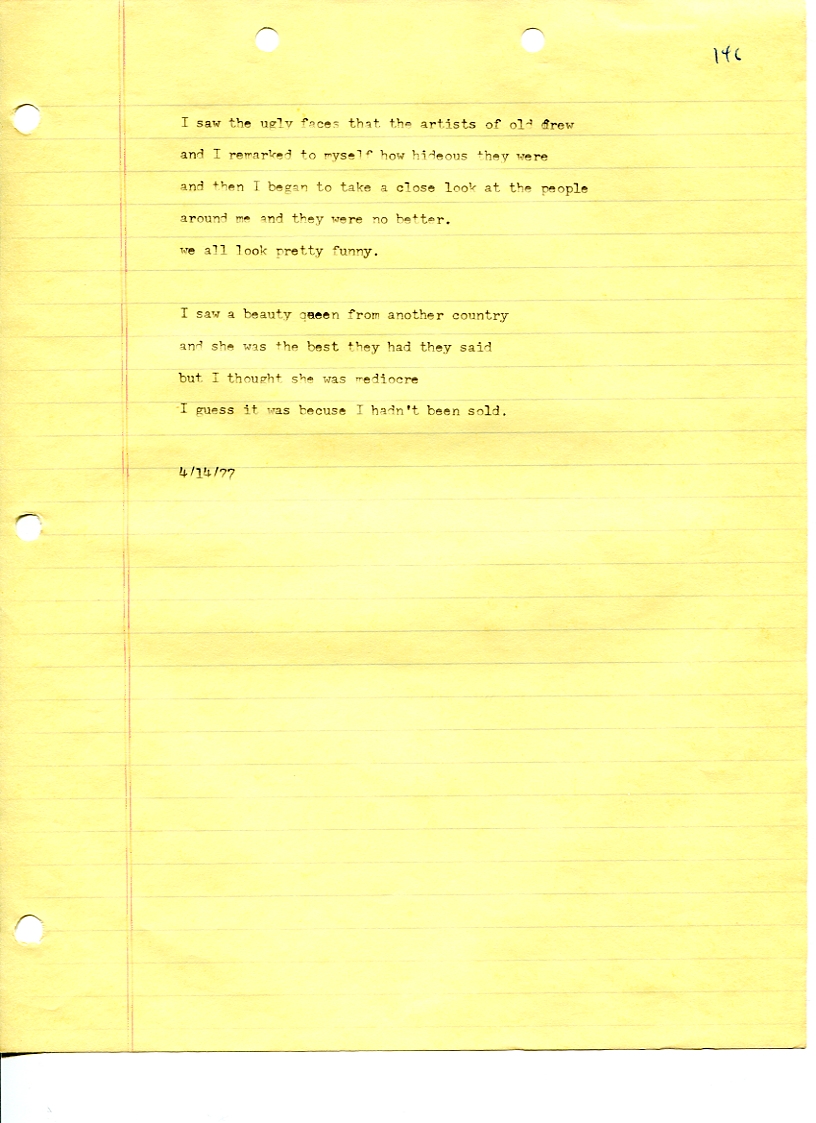 146
I saw the ugly faces that the artists of old drew
and I remarked to myself how hideous they were
and then I began to take a close look at the people
around me and they were no better.
we all look pretty funny.
I saw a beauty queen from another country
and she was the best they had they said
but I thought she was mediocre
I guess it was becuse I hadn't been sold.
4/14/77